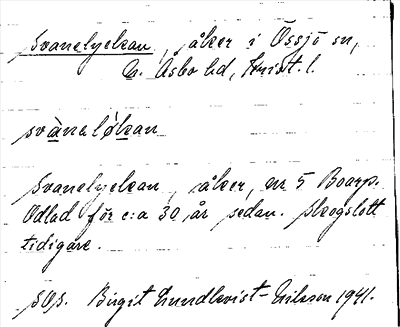 Svanelyckan, åker i Össjö sn,
N. Åsbo hd, Krist. l.
svànelókan
Svanelyckan, åker, nr 5 Boarp.
Odlad för c:a 30 år sedan. Skogslott
tidigare.
Birgit Lundkvist-Nilsson 1941.